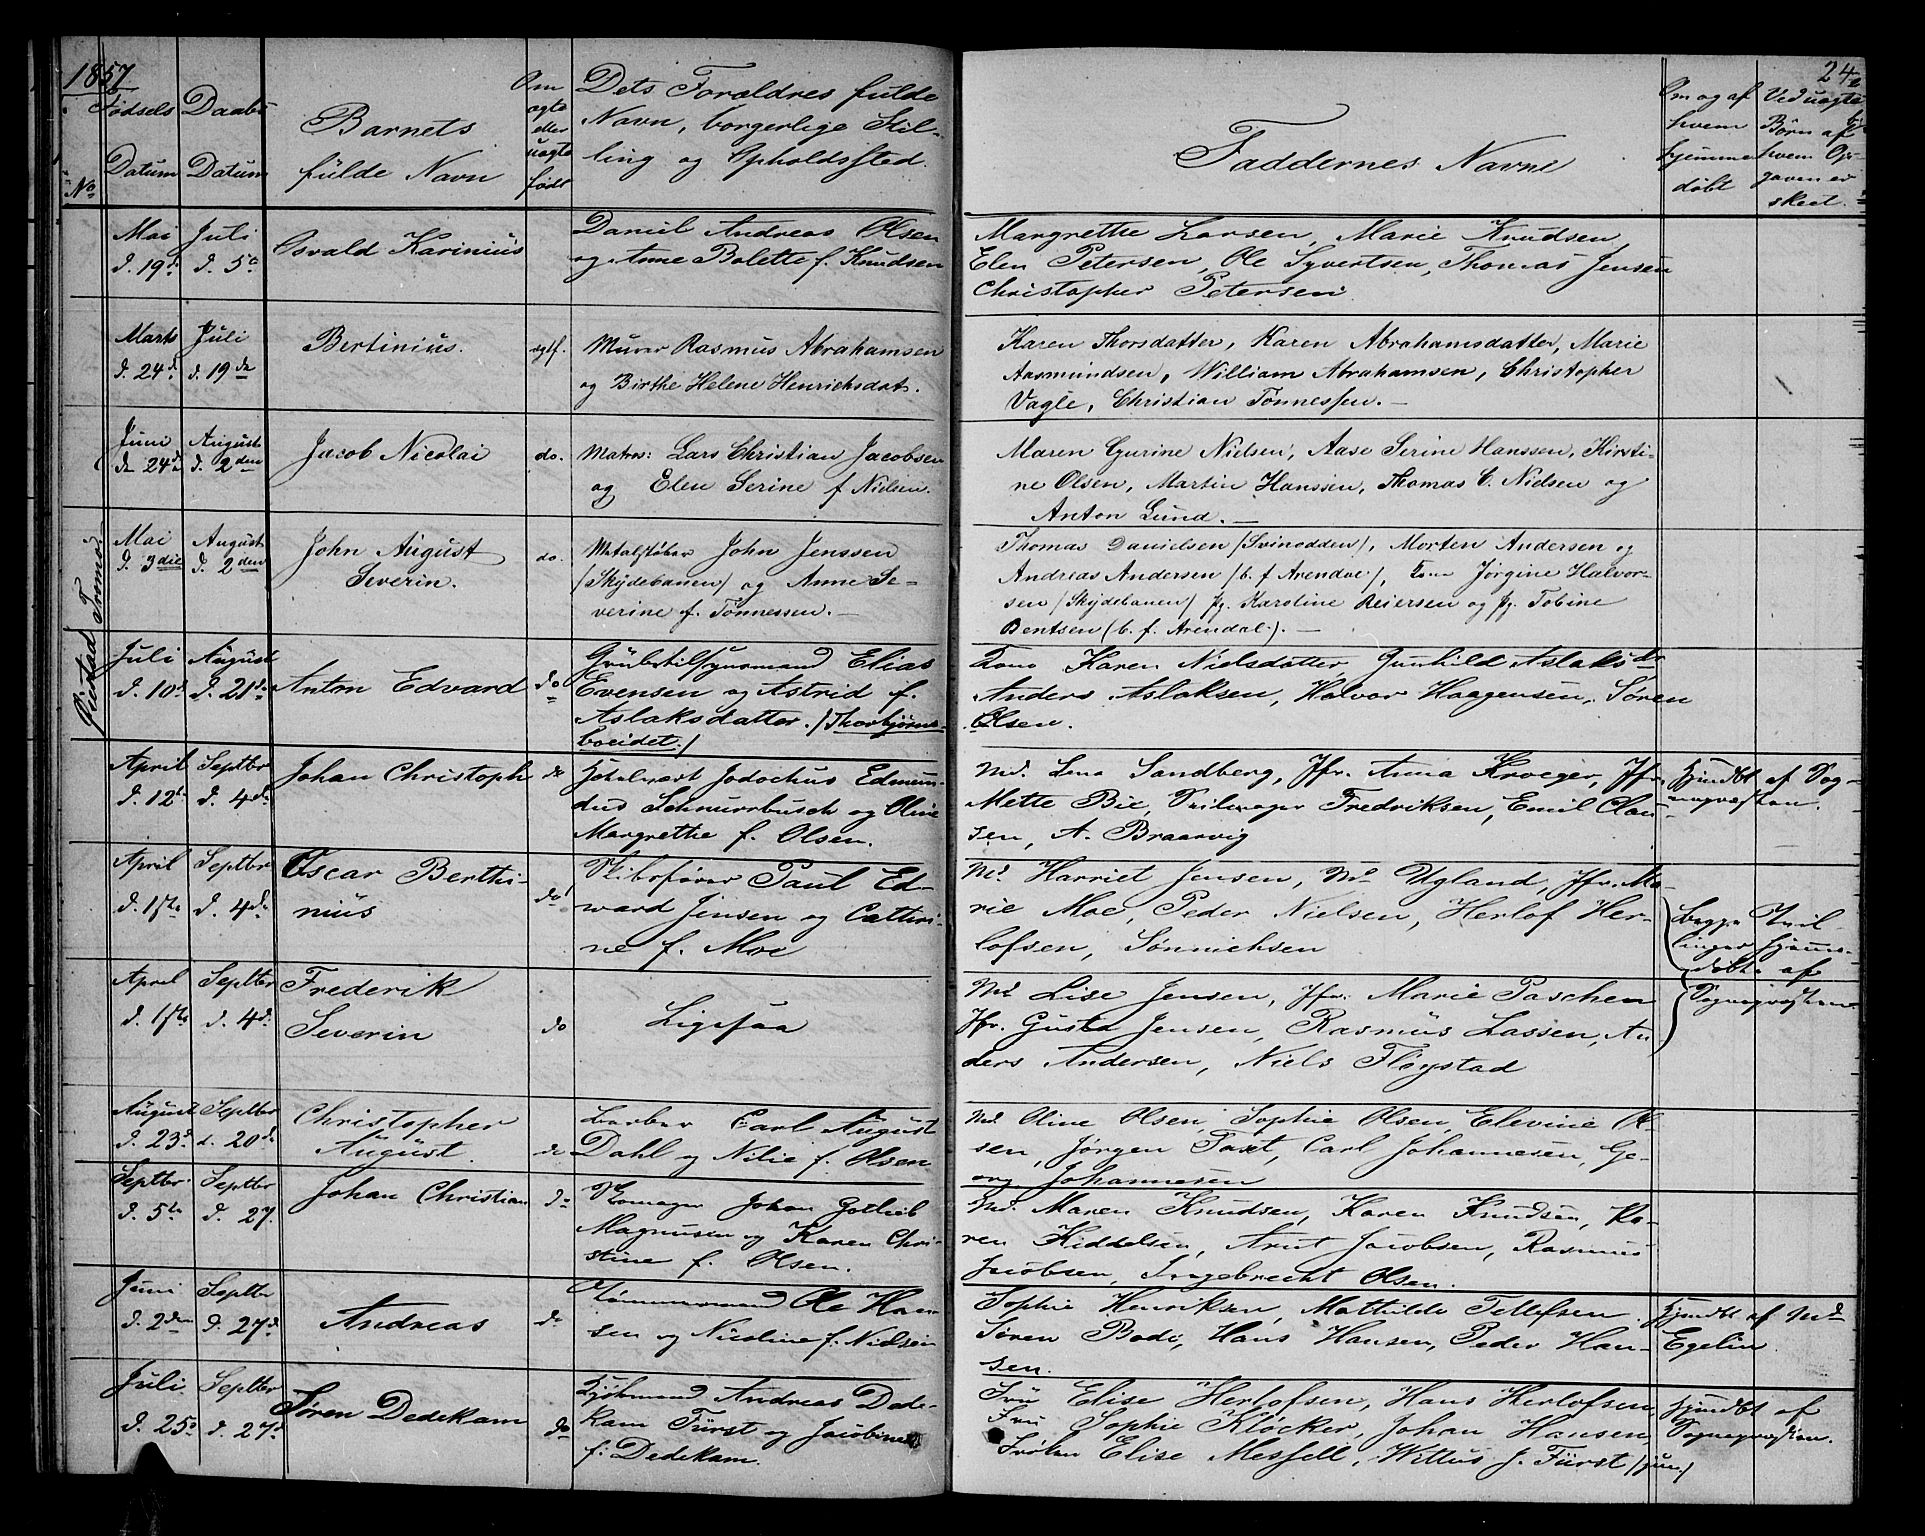 1857.
24
No
Fødsels
Datum
Daabs
Datum
Barnets
fulde Navn
Om
ægte
eller
uægte
født
Dets Forældres fulde
Navn, borgerlige Stil-
ling og Opholdssted.
Faddernes Navne
Om og af
hvem
hjemme
døbt
Ved uægte
Børn af
hvem
skeet.
Mai
d. 19d
Juli
d. 5te
Osvald Karinius
Daniel Andreas Olsen
og Anne Bolette f. Knudsen
Margrethe Larsen, Marie Knudsen,
Elen Petersen, Ole Syvertsen, Thomas Jensen
Christopher Petersen
Marts
d. 24d
Juli
d. 19de
Bertinius.
Murer Rasmus Abrahamsen
og Birthe Helene Henrichsdat.
Karen Thorsdatter, Karen Abrahamsdatter, Marie
Aasmundsen, William Abrahamsen, Christopher
Vagle, Christian Tønnessen. —
Juni
24d
August
d. 2den
Jacob Nicolai
do.
Matros: Lars Christian Jacobsen
og Elen Serine f. Nielsen.
Maren Gurine Nielsen, Aase Serine Hanssen, Kirsti-
ne Olsen, Martin Hanssen, Thomas C. Nielsen og
Anton Lund. —
Tromø.
Mai
d. 3die
August
d. 2den
John August
Severin.
do.
Metalstøber John Jenssen
(Skydebanen) og Anne Se-
verine f. Tønnessen. —
Thomas Danielsen (Svinodden), Morten Andersen og
Andreas Andersen (b. f. Arendal), Kone Jørgine Halvor-
sen (Skydebanen) Pg. Karoline Reiersen og Pg. Tobine
Bentsen (b. f. Arendal). —
Øiestad
Juli
d. 10d
August
d. 21de
Anton Edvard
do
Elias
Evensen og Astrid f.
Aslaksdatter. (Thorbjørns-
boeidet.)
Kone Karen Nielsdatter, Gunhild Aslaksdr
Anders Aslaksen, Halvor Haagensen, Søren
Olsen.
April
d. 12t
Septbr
d. 4de
Johan Christoph
do
Jodochus Edmun-
dus Schnurrbusch og Oline
Margrethe f. Olsen.
Md. Lena Sandberg, Jfr. Anna Krøeger, Jfr.
Mette Bie, Seilmager Fredriksen, Emil Clau-
sen, A. Braarvig
Hjmdbt af Sog-
nepræsten.
April
d. 17te
Septbr
d. 4de
Oscar Berthi-
nius
do
Skibsfører Paul Ed-
ward Jensen og Cathri-
ne f. Moe
Md. Harriet Jensen, Md Ugland, Jfr. Ma-
rie Moe, Peder Nielsen, Herlof Her-
lofsen, Sønnichsen
begge Tvil-
linger hjemme-
døbte af
Sognepræsten
April
d. 17te
Septbr
d. 4d.
Frederik
Severin
do
Ligesaa
Md Lise Jensen, Jfr. Marie Paschen
Jfr. Gusta Jensen, Rasmus Lassen, An-
ders Andersen, Niels Fløystad
August
d. 23d
Septbr
d. 20d
Christopher
August.
do
Barber Carl August
Dahl og Nilie f. Olsen
Md. Oline Olsen, Sophie Olsen, Elevine Ol-
sen, Jørgen Post, Carl Johannesen, Ge-
org Johannesen
Septbr.
d. 5te
Septbr
d. 27.
Johan Christian
do
Skomager Johan Gotlieb
Magnusen og Karen Chri-
stine f. Olsen.
Md. Maren Knudsen, Karen Knudsen, Ka-
ren Kiddelsen, Arnt Jacobsen, Rasmus
Jacobsen, Ingebrecht Olsen.
Juni
d. 2den
Septbr
d. 27d
Andreas
do
Tømmermand Ole Han-
sen og Nicoline f. Nielsen
Sophie Henriksen, Mathilde Tellefsen
Søren Bodi, Hans Hansen, Peder Han-
sen.
Hjmdbt af Md
Egelin
Juli
d. 25d
Septbr
d. 27d
Søren Dedekam
do
Kjøbmand Andreas Dede-
kam Fürst og Jacobine
f. Dedekam.
Fru Elise Herlofsen, Hans Herlofsen
Fru Sophie Kløcker, Johan Hansen,
Frøken Elise Messell, Wittus J. Fürst (jun.)
Hjmdbt af
Sognepræsten.